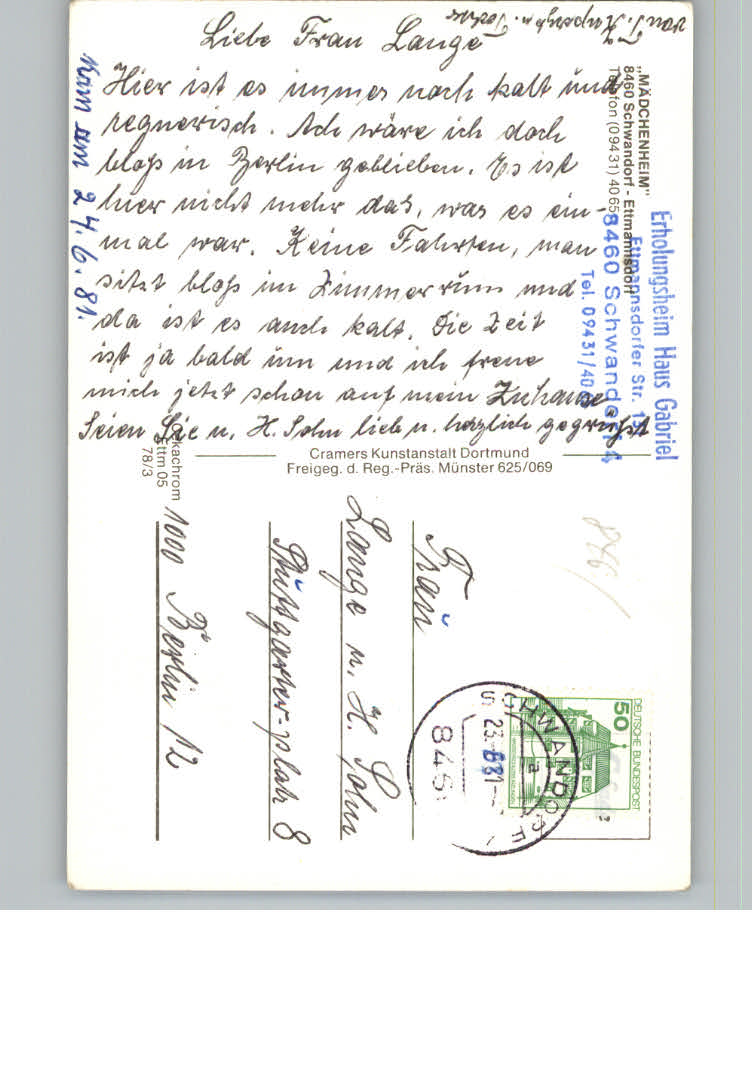 Liebe Frau Lange
Hier ist es immer noch kalt und
regnerisch. Ach wäre ich doch
bloß in Berlin geblieben. Es ist
hier nicht mehr das, was es ein-
mal war. Keine Fahrten, man
sitzt bloß im Zimmer rum und
da ist es auch kalt. Die Zeit
ist ja bald um und ich freue
mich jetzt schon auf mein Zuhause.
Seien Sie u. H. Sohn lieb u. herzlich gegrüßt
von
u. Tochter
Kam am 24.6.81.
„MÄDCHENHEIM"
8460 Schwandorf - Ettmannsdorf
Telefon (09431) 40 65
Erholungsheim Haus Gabriel
Ettmannsdorfer Str. 13
8460 Schwandorf 4
Tel. 09431/40
Cramers Kunstanstalt Dortmund
Freigeg. d. Reg.-Präs. Münster 625/069
Ettm 05
78/3
Frau
Lange u. H. Sohn
Stuttgarter-platz 8
1000 Berlin 12
DEUTSCHE BUNDESPOST
50
SCHWANDORF
23.-6.81
a
845